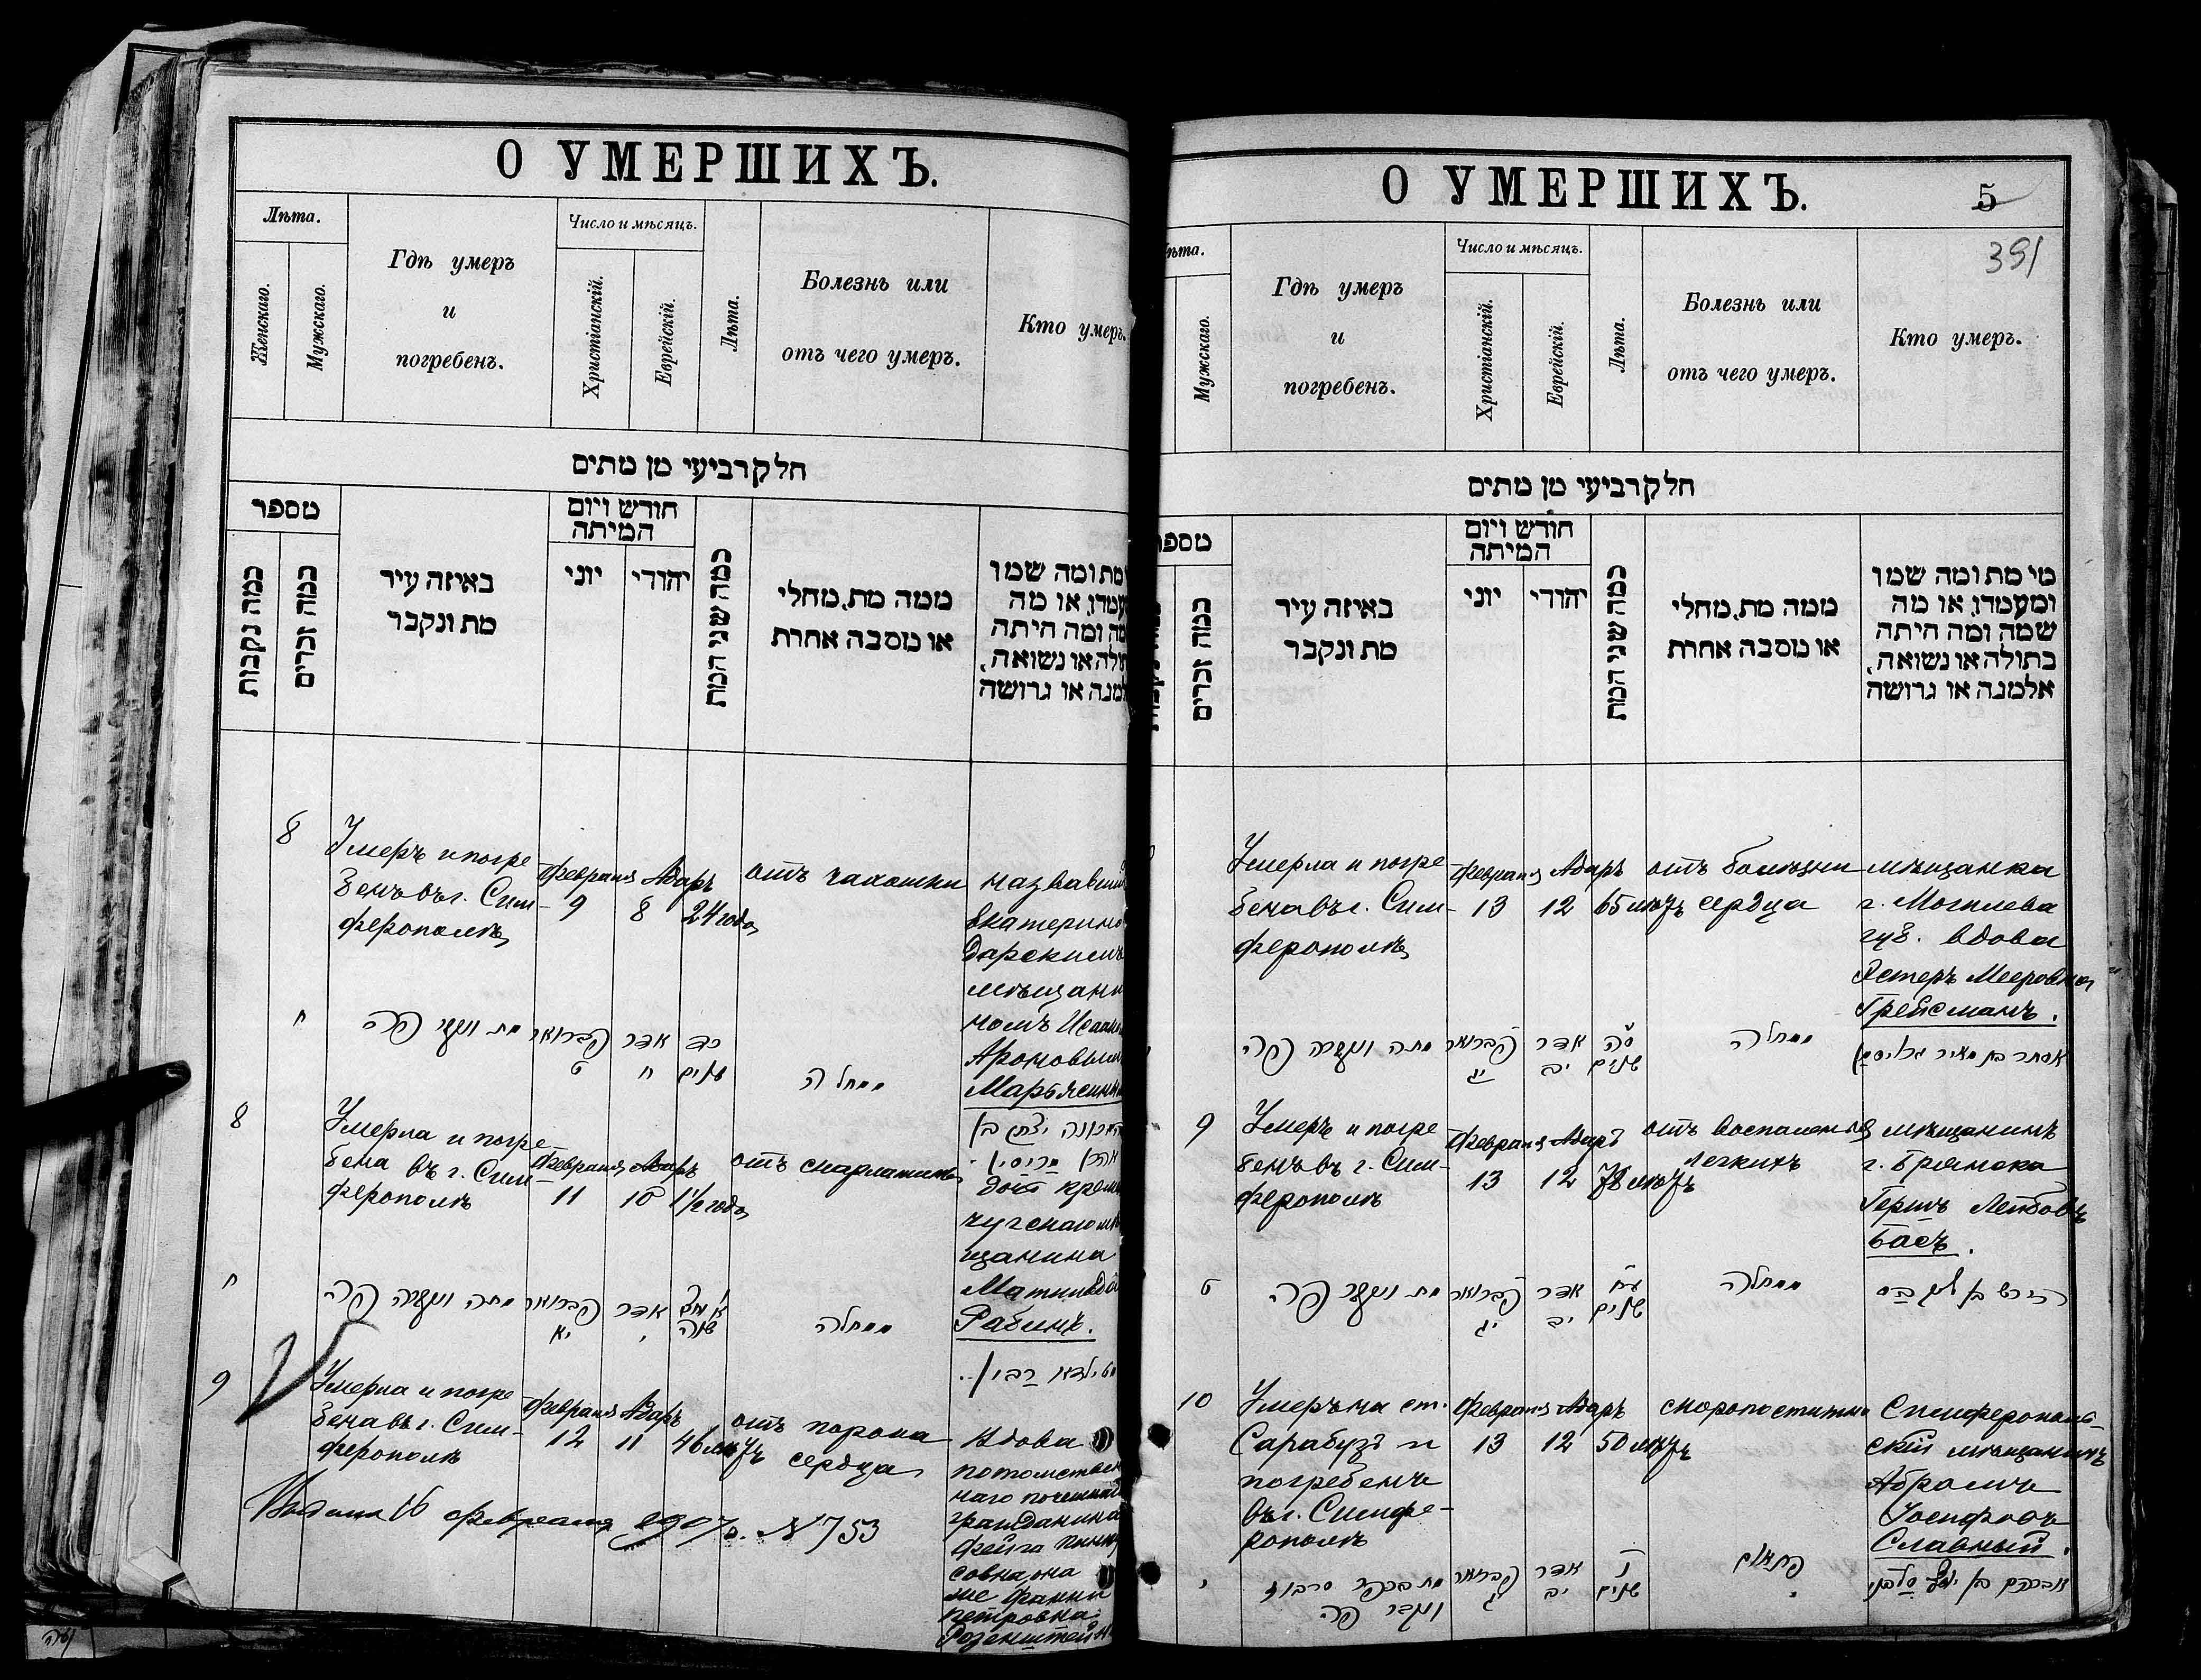 О УМЕРШИХЪ.
Лѣта.
Женскаго.
Мужскаго.
Гдѣ умеръ
и
погребенъ.
Число и мѣсяцъ.
Христіанскій.
Еврейскій.
Лѣта.
Болезнь или
отъ чего умеръ.
Кто умеръ.
חלק רביעי מן מתים
מספר
כמה נקבות
כמה זכרים
באיזה עיר
מת ונקבר
חודש ויום
המיתה
יוני
יהודי
כמה שני המת
ממה מת, מחלי
או מסבה אחרת
מת ומה שמו
או מה
ומה היתה
או נשואה,
או גרושה
8
Умеръ и погре
бенъ въ г. Сим-
ферополѣ
Февраля
9
Адаръ
8
24 года
отъ чахотки
назвавшій
Екатерино
дарскимъ
мѣщани
номъ Исаакъ
Ароновымъ
Марьясинъ
ח
מת ונקבר פה
פברואר
ט
אדר
ח
כד
שנים
ממחלה
המכונה יצחק בן
אהרן מריסין.
8
Умерла и погре
бена въ г. Сим-
ферополѣ
Февраля
11
Адаръ
10
1½ года
отъ скарлатины
дочь кремен
чугскаго мѣ
щанина
Матильда
Рабинъ.
ח
מתה ונקברה פה
פברואר
יא
אדר
י
שנה
ממחלה
מטילדא רבין..
9
Умерла и погре
бена въ г. Сим-
ферополѣ
Февраля
12
Адаръ
11
46 лѣтъ
отъ порока
сердца
Вдова
потомствен
наго почетнаго
гражданина
Фейга
совна она
же Фанни
Петровна
Розенштейнъ
16 февраля 1907 г. № 753
О УМЕРШИХЪ.
5
391
Мужскаго.
Гдѣ умеръ
и
погребенъ.
Число и мѣсяцъ.
Христіанскій.
Еврейскій.
Лѣта.
Болезнь или
отъ чего умеръ.
Кто умеръ.
חלק רביעי מן מתים
כמה זכרים
באיזה עיר
מת ונקבר
חודש ויום
המיתה
יוני
יהודי
כמה שני המת
ממה מת, מחלי
או מסבה אחרת
מי מת ומה שמו
ומעמדו, או מה
שמה ומה היתה
בתולה או נשואה,
אלמנה או גרושה
Умерла и погре
бена въ г. Сим-
ферополѣ
Февраля
13
Адаръ
12
65 лѣтъ
отъ болѣзни
сердца
мѣщанка
г. Могилева
губ. вдова
Эстеръ Мееровна
Грейсманъ.
מתה ונקברה פה
פברואר
יג
אדר
יב
סה
שנים
ממחלה
אסתר בת מאיר גרייסמן
9
Умеръ и погре
бенъ въ г. Сим-
ферополѣ
Февраля
13
Адаръ
12
78 лѣтъ
отъ воспаленія
легкихъ
мѣщанинъ
г. Брянска
Гершъ Лейбовъ
Басъ.
ט
מת ונקבר פה
פברואר
יג
אדר
יב
עח
שנים
ממחלה
הירש בן לייב בס
10
Умеръ на ст.
Сарабузъ и
погребенъ
въ г. Симфе-
рополѣ
Февраля
13
Адаръ
12
50 лѣтъ
скоропостижно
Симферополь-
скій мѣщанинъ
Абрамъ
Іосифовъ
Славный.
י
ונקבר פה
פברואר
יג
אדר
יב
נ
שנים
פתאום
אברהם בן יוסף סלבני